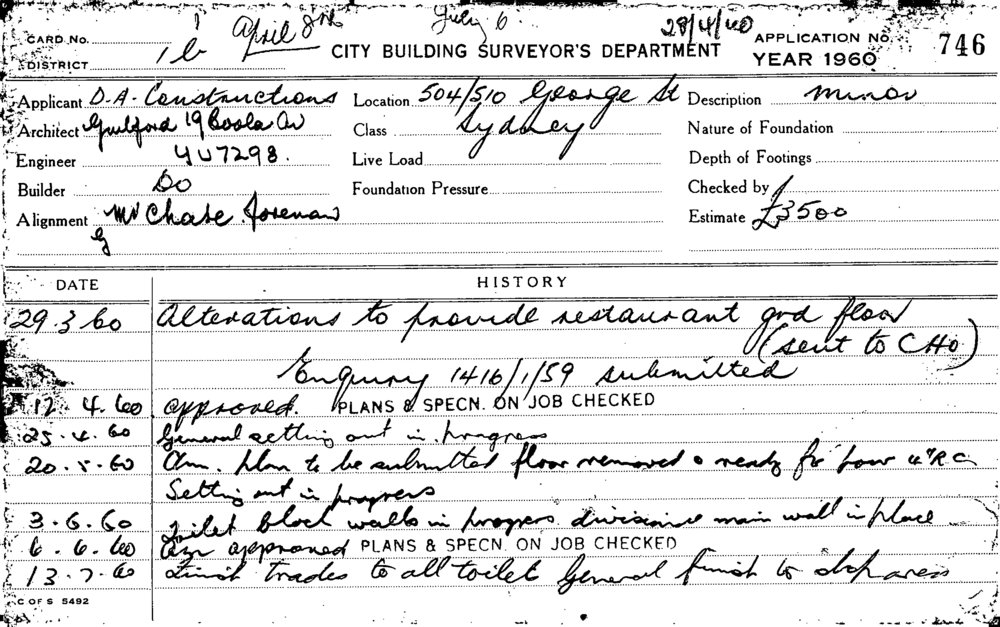 April 8th July 6. 28/4/60
CARD No. CITY BUILDING SURVEYOR'S DEPARTMENT APPLICATION No. 746
DISTRICT YEAR 1960
Applicant D.A. Constructions Location 504/510 George St Description Minor
Architect Guilford 19 Boola Av Class Sydney Nature of Foundation
Engineer YU7298. Live Load Depth of Footings
Builder Do Foundation Pressure Checked by
Alignment Mr Chase foreman Estimate £3500
DATE HISTORY
29.3.60 Alterations to provide restaurant grd floor
(sent to CHO)
Enquiry 1416/1/59 submitted
12.4.60 approved. PLANS & SPECN. ON JOB CHECKED
25.4.60 General setting out in progress
20.5.60 Am. plan to be submitted floor removed & ready for pour 4" RC
Setting out in progress
3.6.60 Toilet block walls in progress main wall in place
6.6.60 Am approved PLANS & SPECN. ON JOB CHECKED
13.7.60 Finish trades to all toilet General finish to shop areas
C OF S 5492